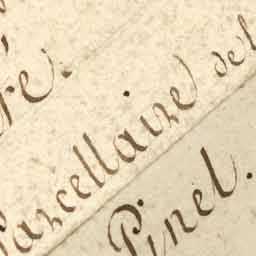 re.
Parcellaire del
Pinel.